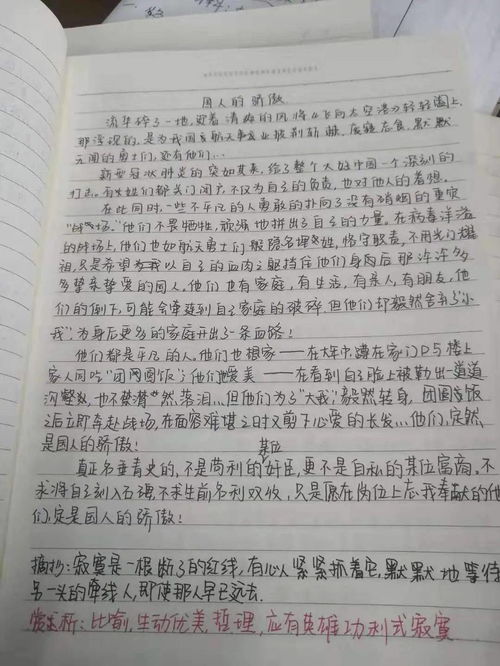 国人的骄傲
流年碎了一地,迎着清晰的风将《飞向太空港》轻轻阖上,
那深深的,是为我国航天事业披荆斩棘、废寝忘食、默默
无闻的勇士们,还有他们…
新型冠状肺炎的突如其来,给了整个大好中国一个深刻的
打击。有的人们都关门闭户,不仅为自己的负责,也对他人的着想。
在此同时,一些不平凡的人勇敢的扑向了没有硝烟的重灾
"战场。"他们不畏牺牲,顽强地拼出了自己的力量。在病毒洋溢
的战场上,他们也如航天勇士们般隐名埋姓,恪守职责,不用光门耀
祖,只是希望为我以自己的血肉之躯挡住他们身后那许许多
多挚亲挚爱的国人,他们也有家庭,有生活,有亲人,有朋友,他
们的倒下,可能会牵连到自己家庭的破碎,但他们却毅然舍弃"小
我",为身后更多的家庭开出了一条血路!
他们都是平凡的人。他们也顾家——在大年中蹲在家门口与楼上
家人同吃"团圆饭";他们也爱美——在看到自己脸上被勒出一道道
沉壑,也不禁潸然落泪…但他们为了"大我"毅然转身,团圆饭
之后立即奔赴战场,在面容难堪之时又剪下心爱的长发…他们,定然
是国人的骄傲!
真正名垂青史的,不是某位尚利的奸臣,更不是自私的某位富商。不
求将自己刻入石强,不求生前名利双收,只是愿在岗位上忘我奉献的他
们,定是国人的骄傲!
摘抄:寂寞是一根断了的红线,有心人紧紧抓着它,默默地等待
另一头的牵线人,即使那人早已远去.
赏析:比喻,生动优美,哲理,应有英雄功利式寂寞